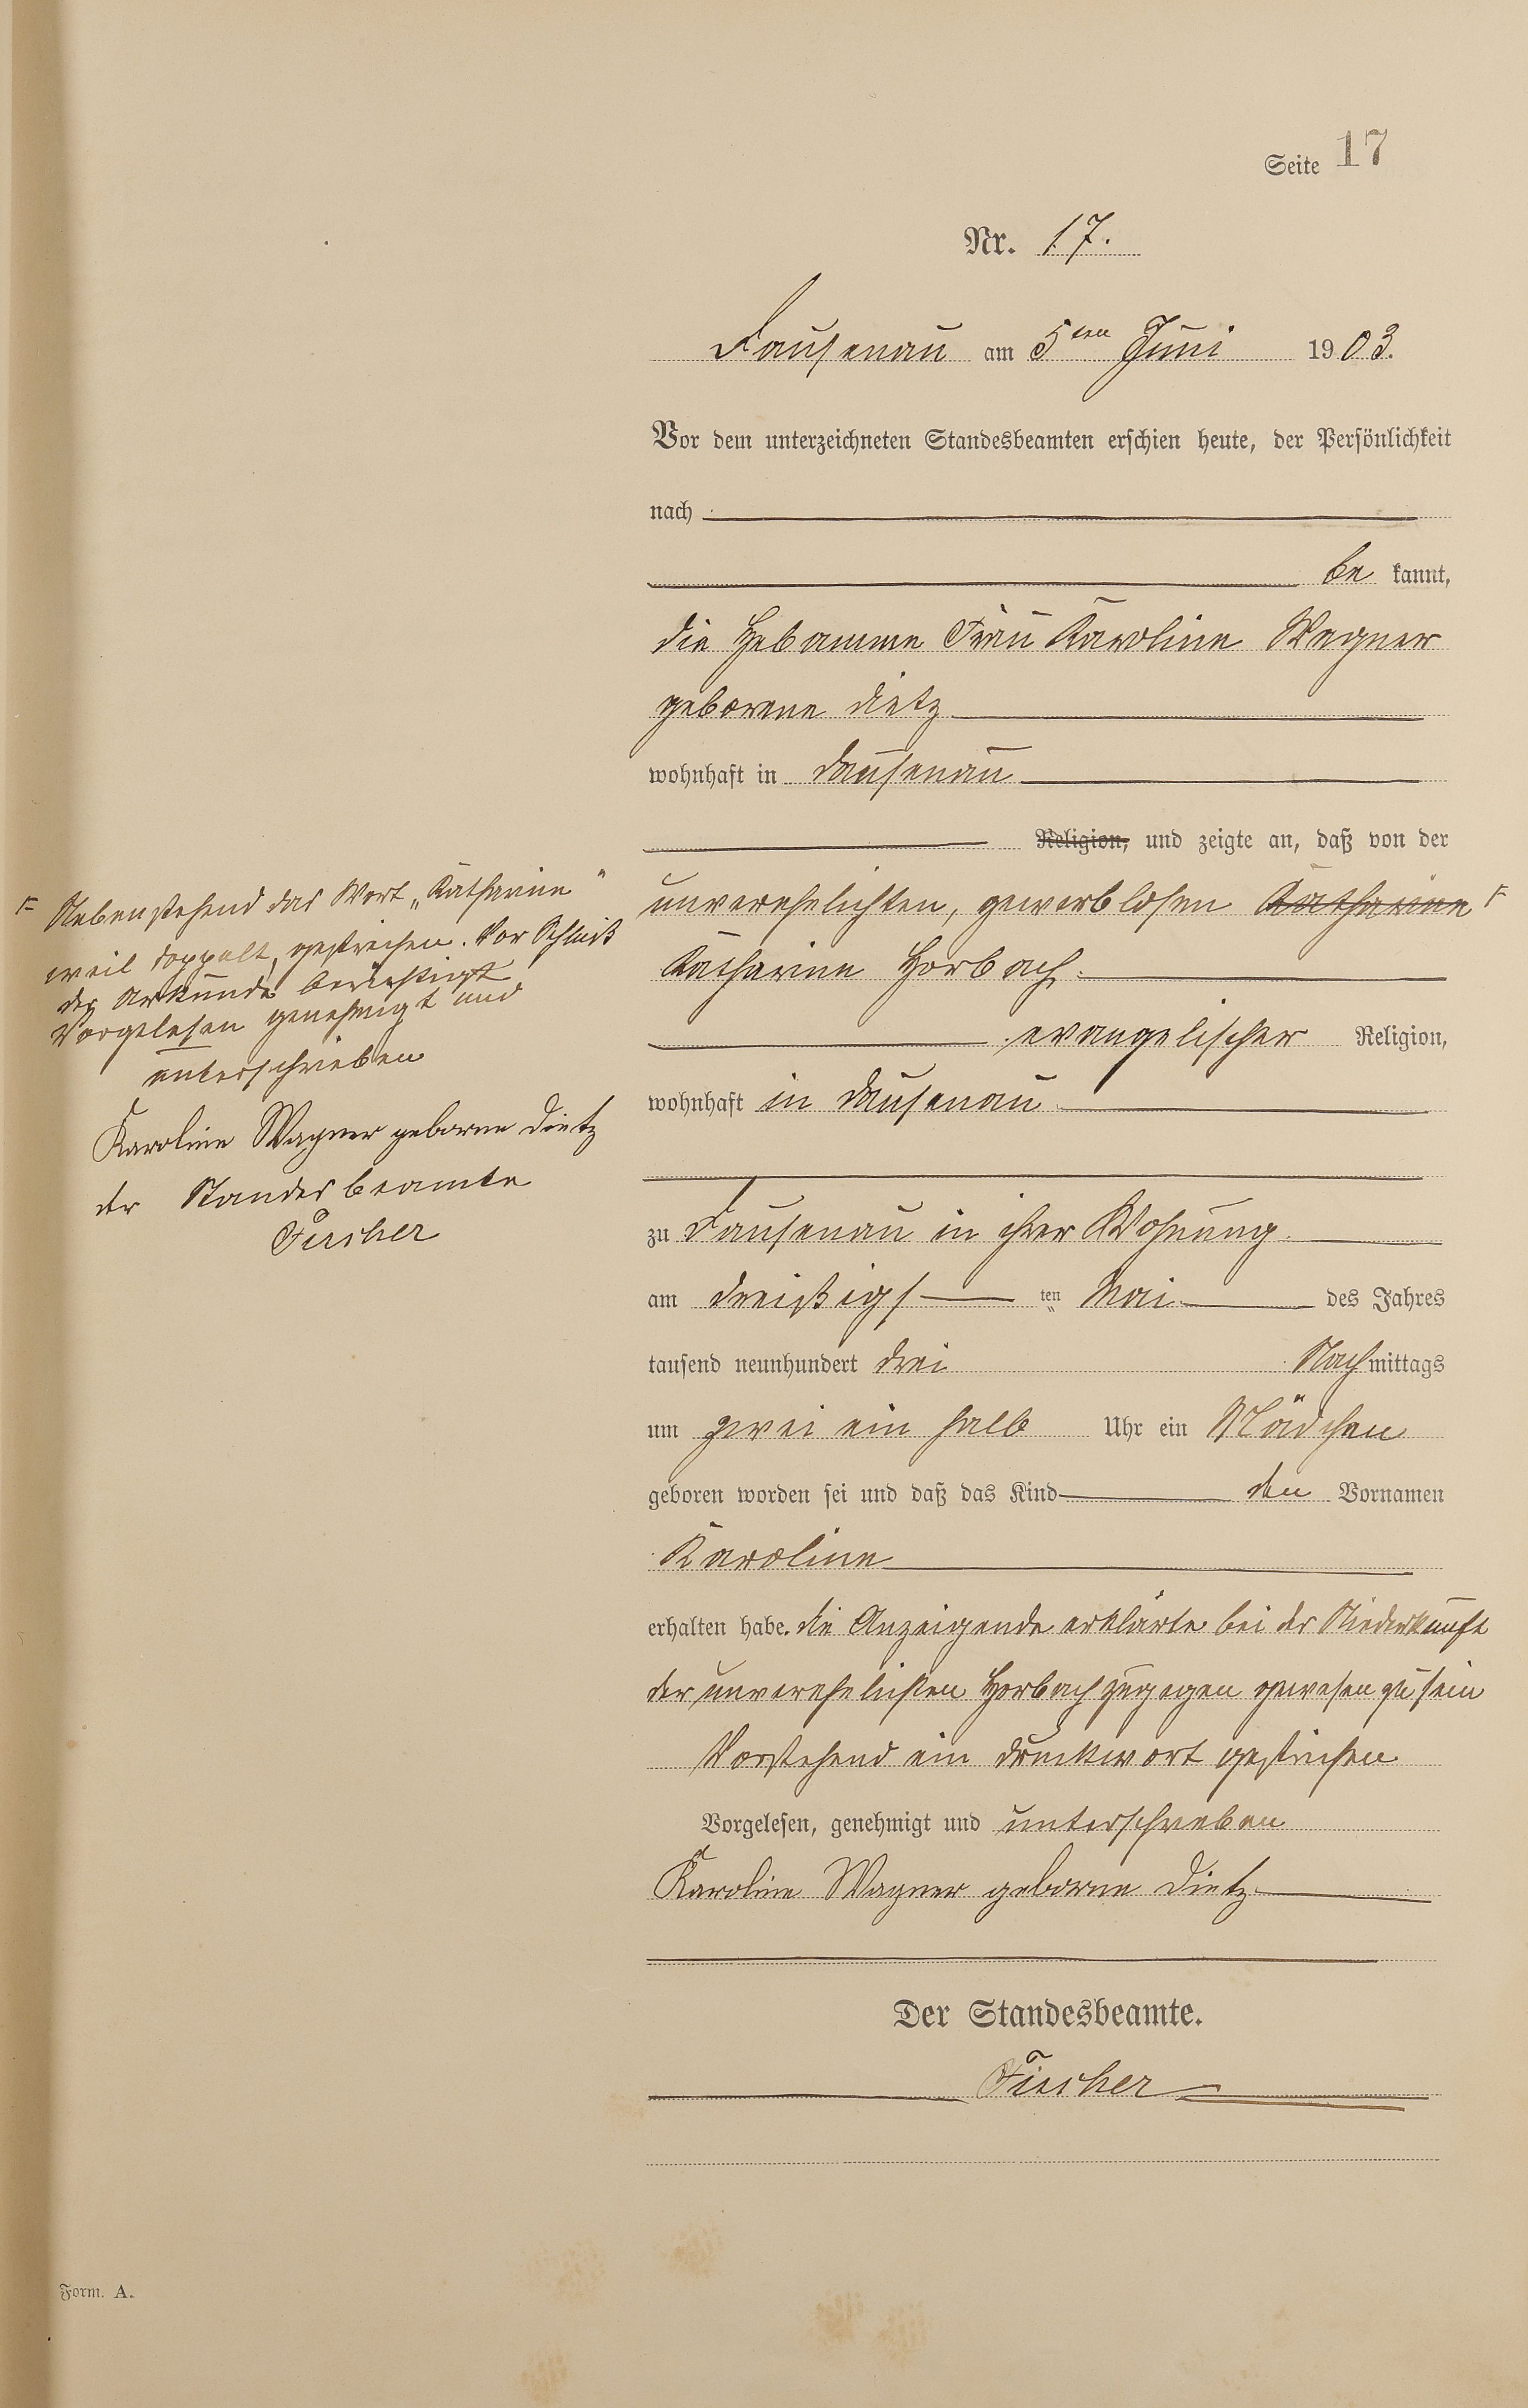 Seite 17
Nr. 17.
Dausenau am 5ten Juni 1903.
Vor dem unterzeichneten Standesbeamten erschien heute, der Persönlichkeit
nach
be kannt,
die Hebamme Frau Karoline Wagner
geborene Dietz
wohnhaft in Dausenau
Religion, und zeigte an, daß von der
unverehelichten, gewerblosen Katharine F
Katharine Horbach
evangelischer Religion,
wohnhaft in Dausenau
zu Dausenau in ihrer Wohnung
am dreißigs ten Mai des Jahres
tausend neunhundert drei Nachmittags
um zwei ein halb Uhr ein Mädchen
geboren worden sei und daß das Kind den Vornamen
Karoline
erhalten habe. Die Anzeigende erklärte bei der Niederkunft
der unverehelichten Horbach zugegen gewesen zu sein
Vorstehend ein Druckwort gestrichen
Vorgelesen, genehmigt und unterschrieben
Karoline Wagner geborne Dietz
Der Standesbeamte.
Fischer
F Nebenstehend das Wort „Katharine"
weil doppelt, gestrichen. Vor Schluß
der Urkunde berichtigt
Vorgelesen genehmigt und
unterschrieben
Karoline Wagner geborne Dietz
der Standesbeamte
Fischer
Form. A.